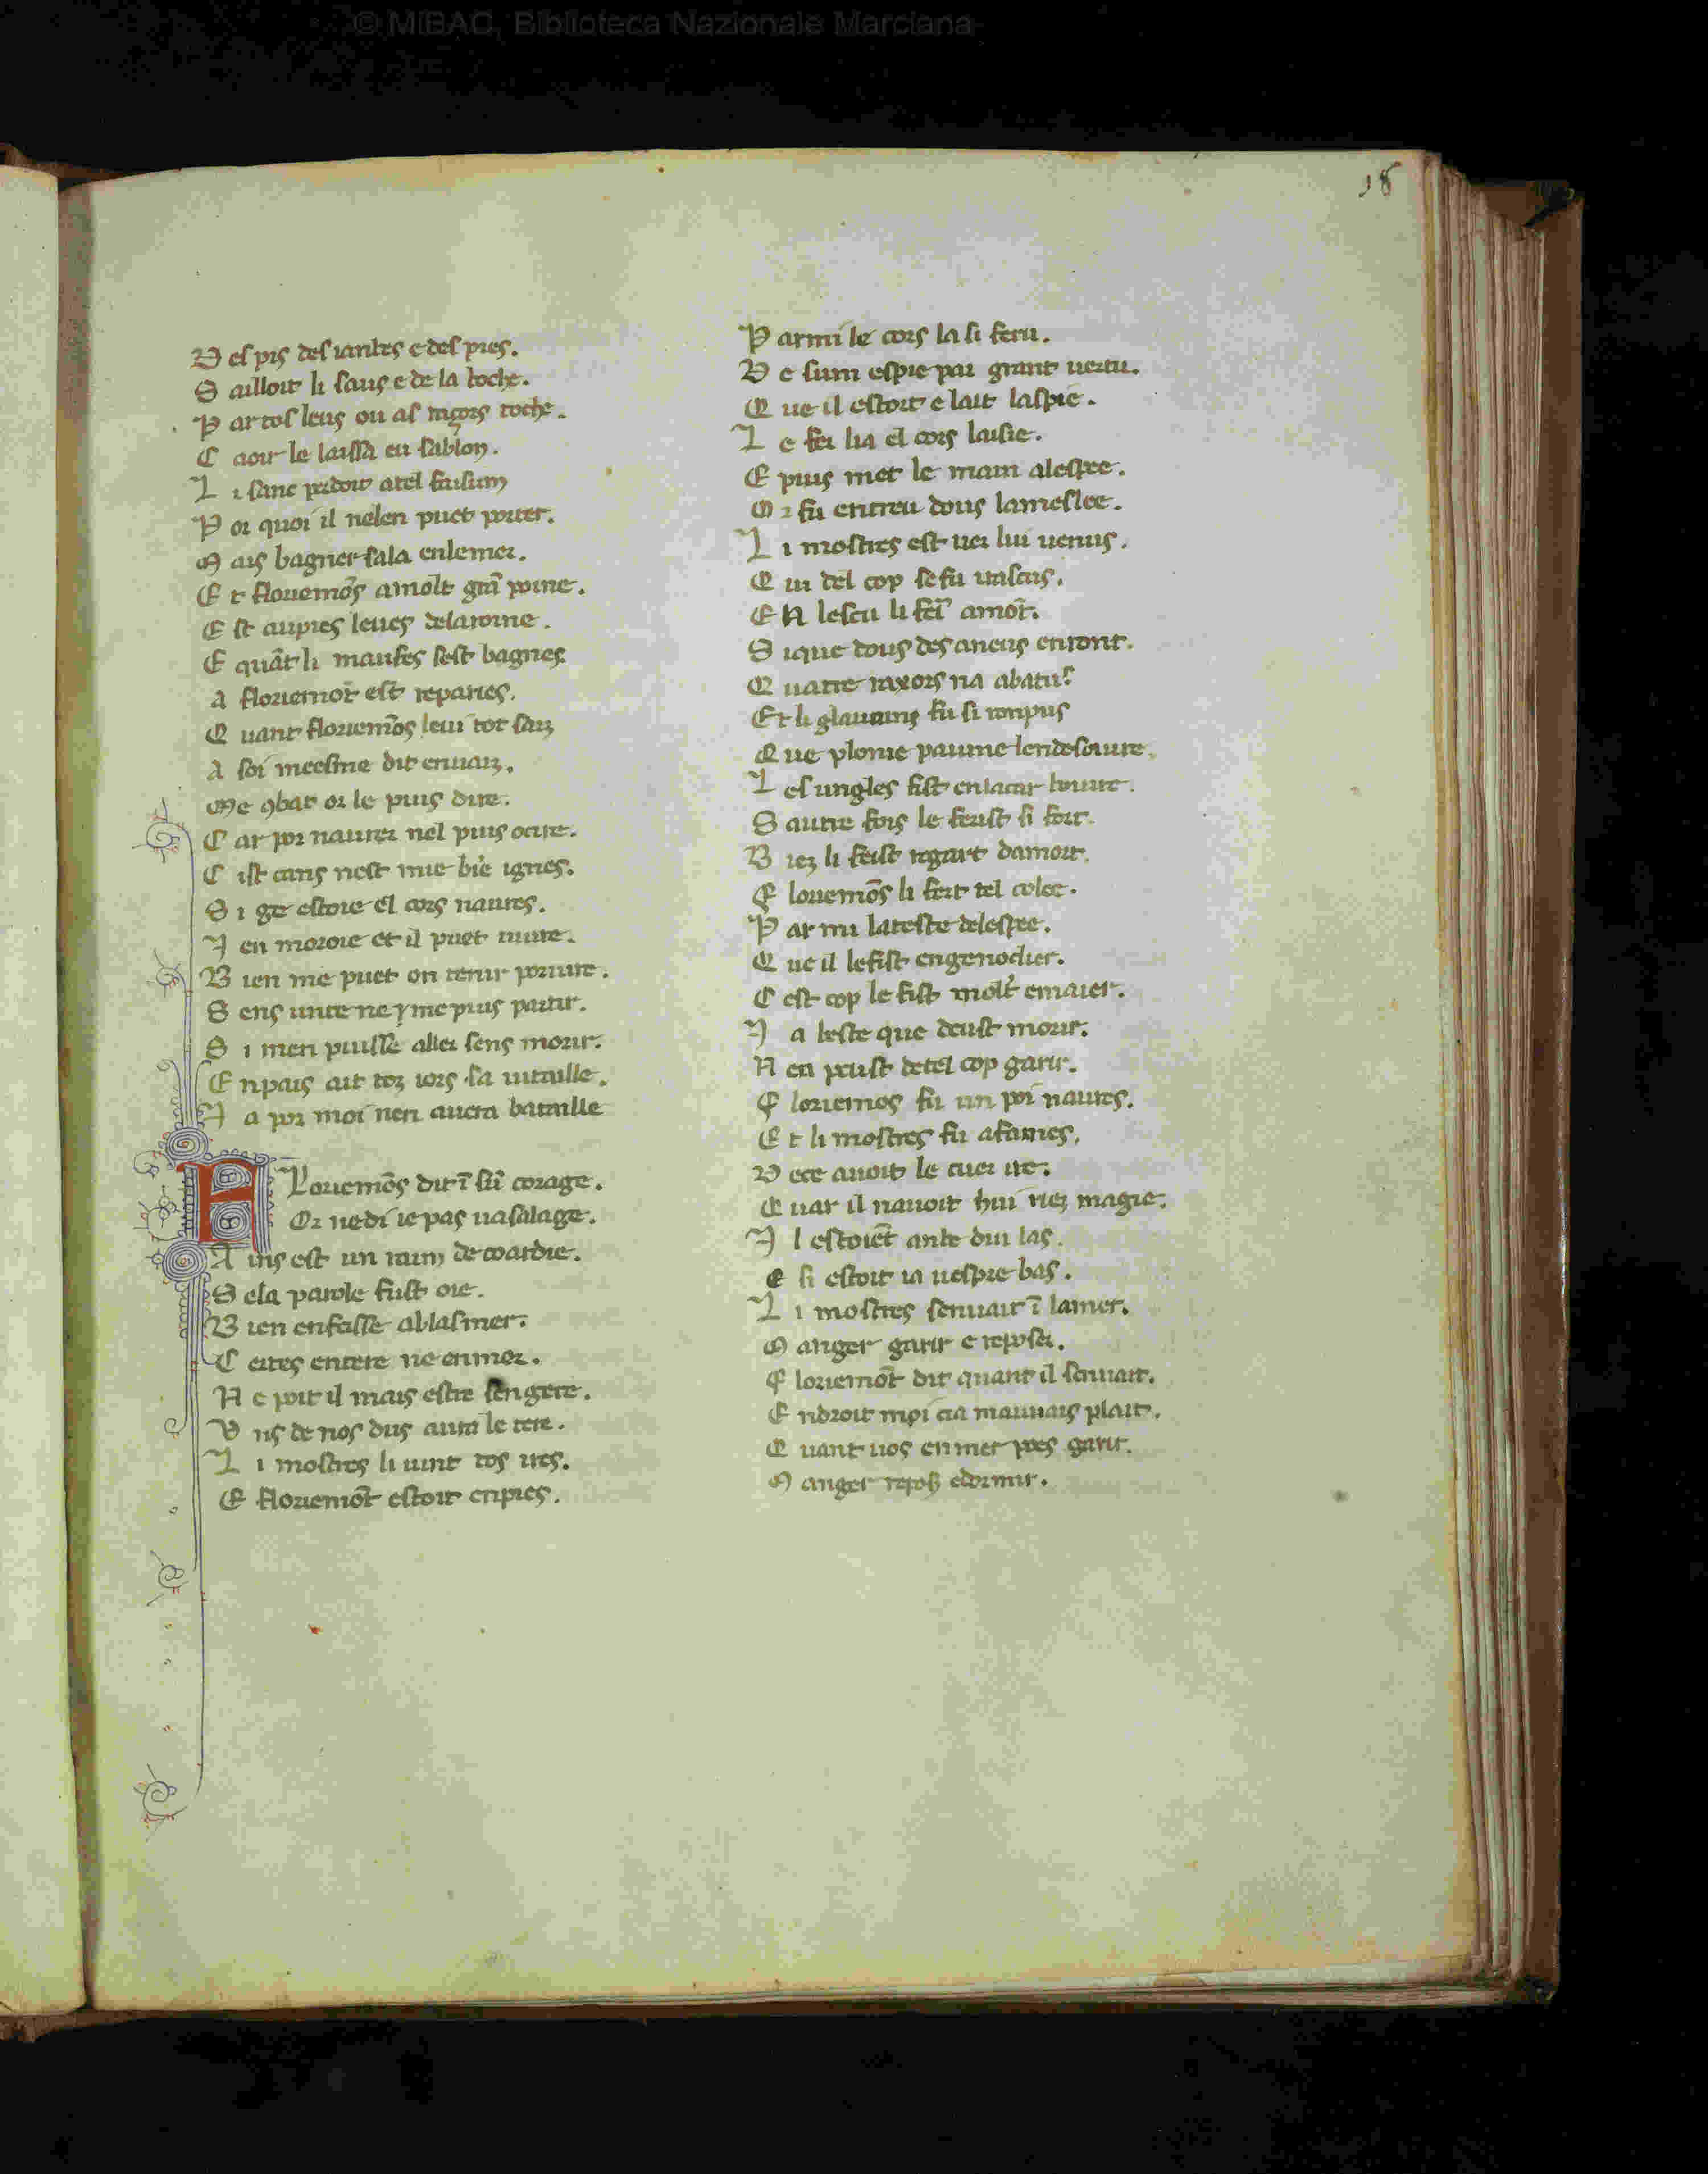 © MiBAC, Biblioteca Nazionale Marciana
18
D el pis del iambes e del pies.
S ailloit li sans e de la boche.
P ar tos leus ou as raçors toche.
C aoir le laissa eu sablon.
L i sanc perdoit a tel fuisum
P or quoi il nelen puet porter.
M ais bagner sala enlemer.
E t floriemōs a molt grā poine.
E st aupres leues delaroine.
E quāt li maufes sest bagnes
A floriemōt est reparies.
Q uant floriemōs leui tot sains
A soi meesme dit enuaiz.
M e 9bat or le puis dire.
C ar por naurer nel puis ocire.
C ist cans nest mie biē ignes.
S i ge estoie el cors naures.
J en moroie et il puet uiure.
B ien me puet on tenir por iure.
S ens unte ne me puis partir.
S i men puisse aller sens morir.
E n pais ait toz iors sa uitaille.
J a por moi nen auera bataille
F Loriemōs dit ī sū corage.
Or ne di ie pas uasalage.
A ins est un raim de coardie.
S ela parole fust oie.
B ien enfaisse ablasmer.
C ertes entere ne enmer.
N e poit il mais estre sengere.
U ns de nos dus aura le tere.
L i mostres li uint tos ires.
E floriemōt estoit enpres.
P armi le cors la si feru.
D e sum espie par grant uertu.
Q ue il estoit e lait laspie.
L e fer lia el cors laisie.
E puis met le main alespee.
O r fu entreu dous lameslee.
L i mostres est uer lui uenus.
Q ui del cop se fu uascus.
E N lescu li feī amōt.
S ique dous des aneus enront.
Q uatre raxors na abatus
Et li glauuins fu si ronpus
Que plonie paume lendesoiure.
L es ungles fist enlacar boiure.
S autre fois le ferist si fort.
B iez li feist regart damort.
F loriemōs li fert tel colee.
P ar mi lateste delespee.
Q ue il le fist engenoclier.
C est cop le fist molt emaier.
J a beste que deust morir.
N en peust detel cop garir.
F loriemos fu un poi naures.
E t li mostres fu afames.
D ece auoit le cuer ire.
Q uar il nauoit hui riez magie.
J l estoiēt anbe dui las.
E li estoit ia uespre bas.
L i mostres senuait ī lamer.
M anger garir e reposer.
F loriemōt dit quant il senuait.
E ndroit moi cia mauuais plait.
Q uant uos enmer poes garir.
M anger repos edormir.